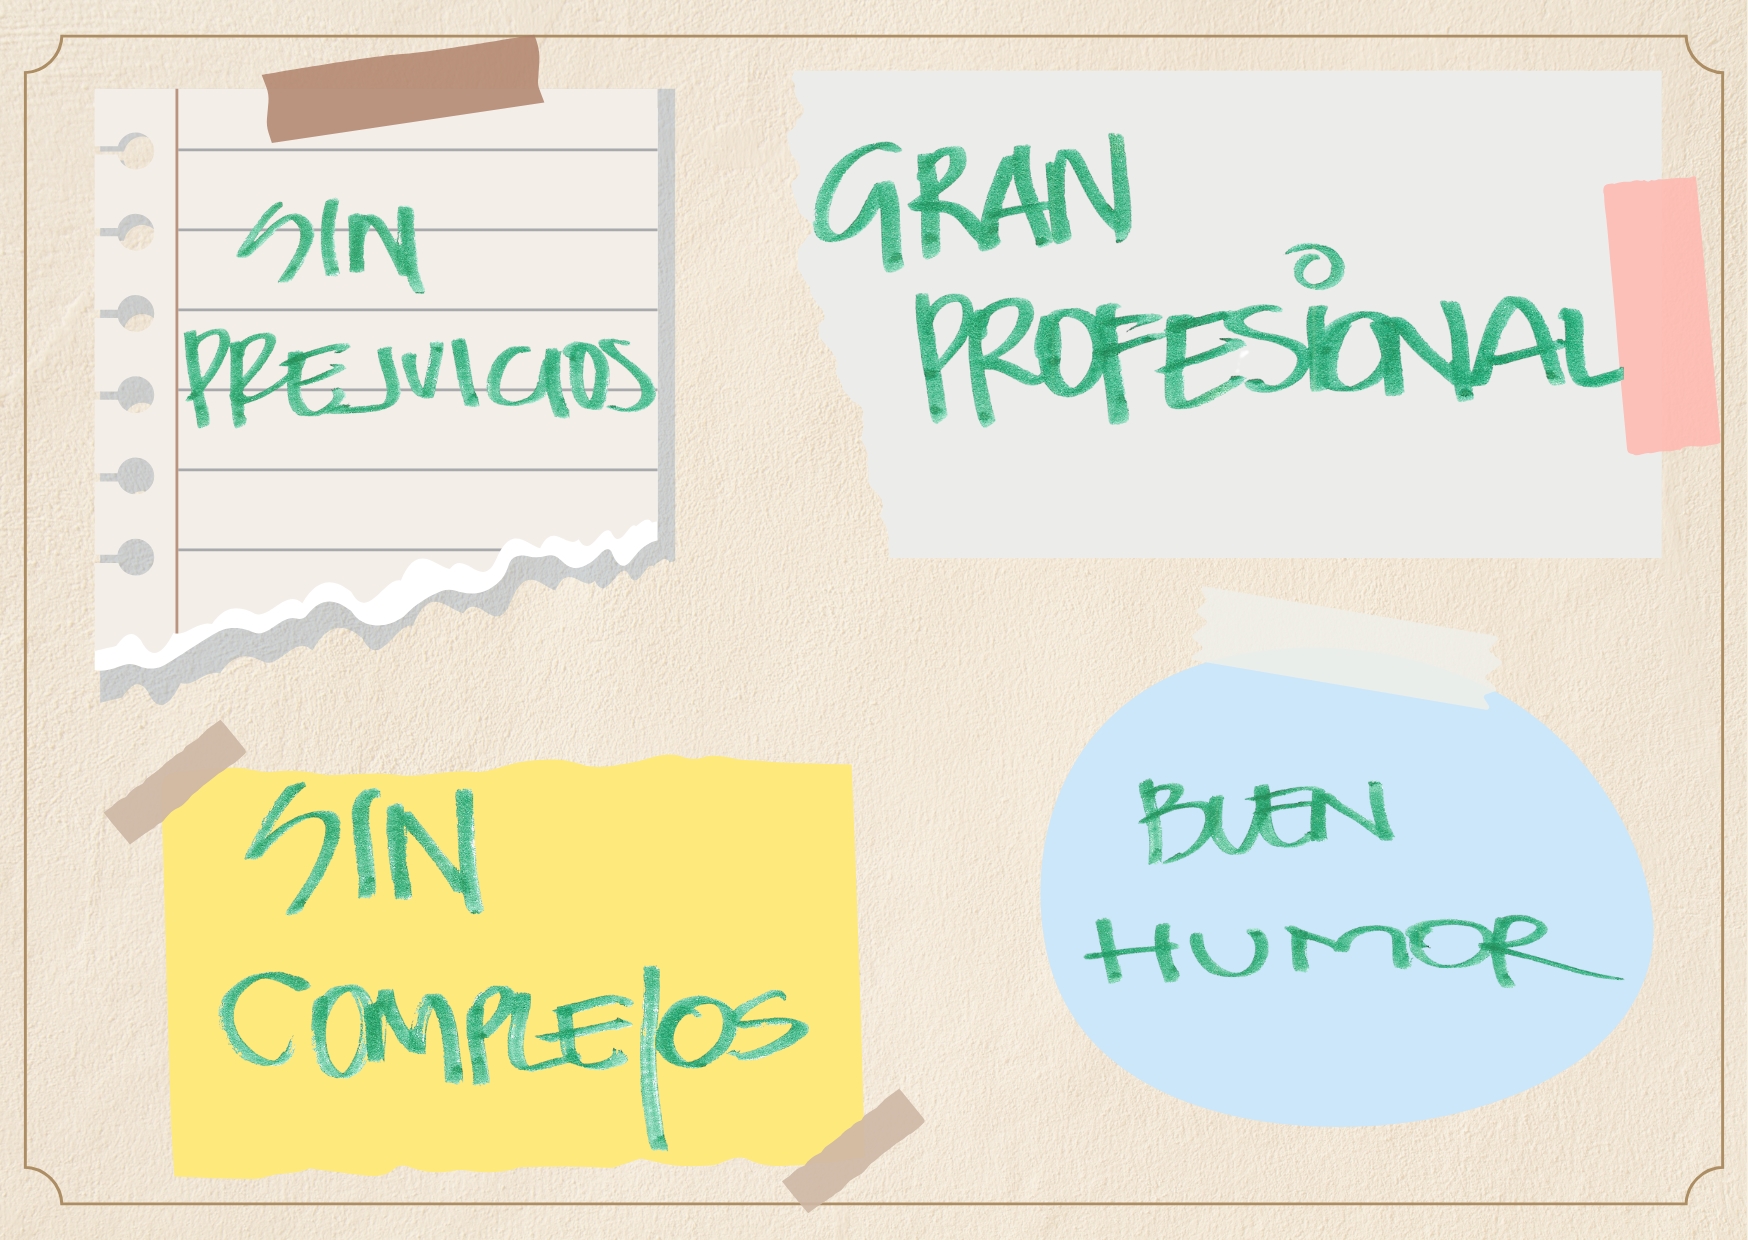 SIN
PREJUICIOS
GRAN
PROFESIONAL
SIN
COMPLEJOS
BUEN
HUMOR